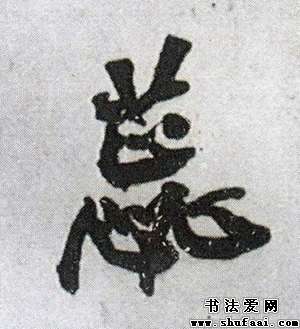 蕊
书法爱网
www.shufaai.com